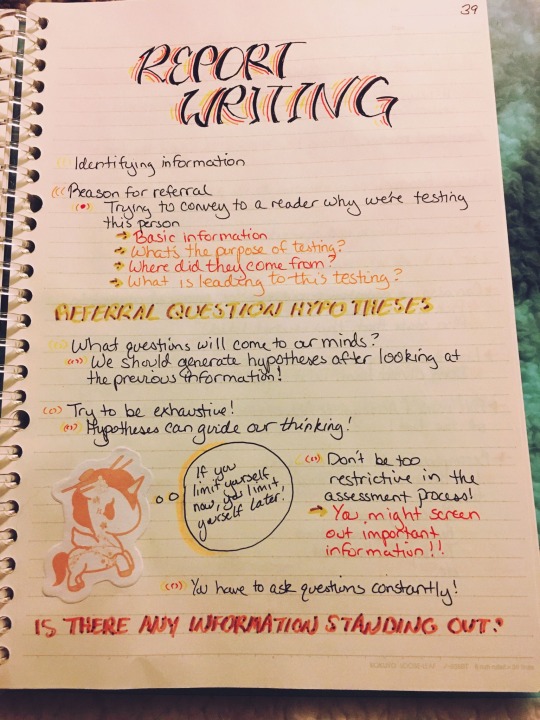 39
REPORT
WRITING
Identifying information
Reason for referral
Trying to convey to a reader why we're testing
this person
Basic information
What's the purpose of testing?
Where did they come from?
What is leading to this testing?
REFERRAL QUESTION HYPOTHESES
What questions will come to our minds?
We should generate hypotheses after looking at
the previous information!
Try to be exhaustive!
Hypotheses can guide our thinking!
If you
limit yourself
now, you limit
yourself later!
Don't be too
restrictive in the
assessment process!
You might screen
out important
information!!
You have to ask questions constantly!
IS THERE ANY INFORMATION STANDING OUT?